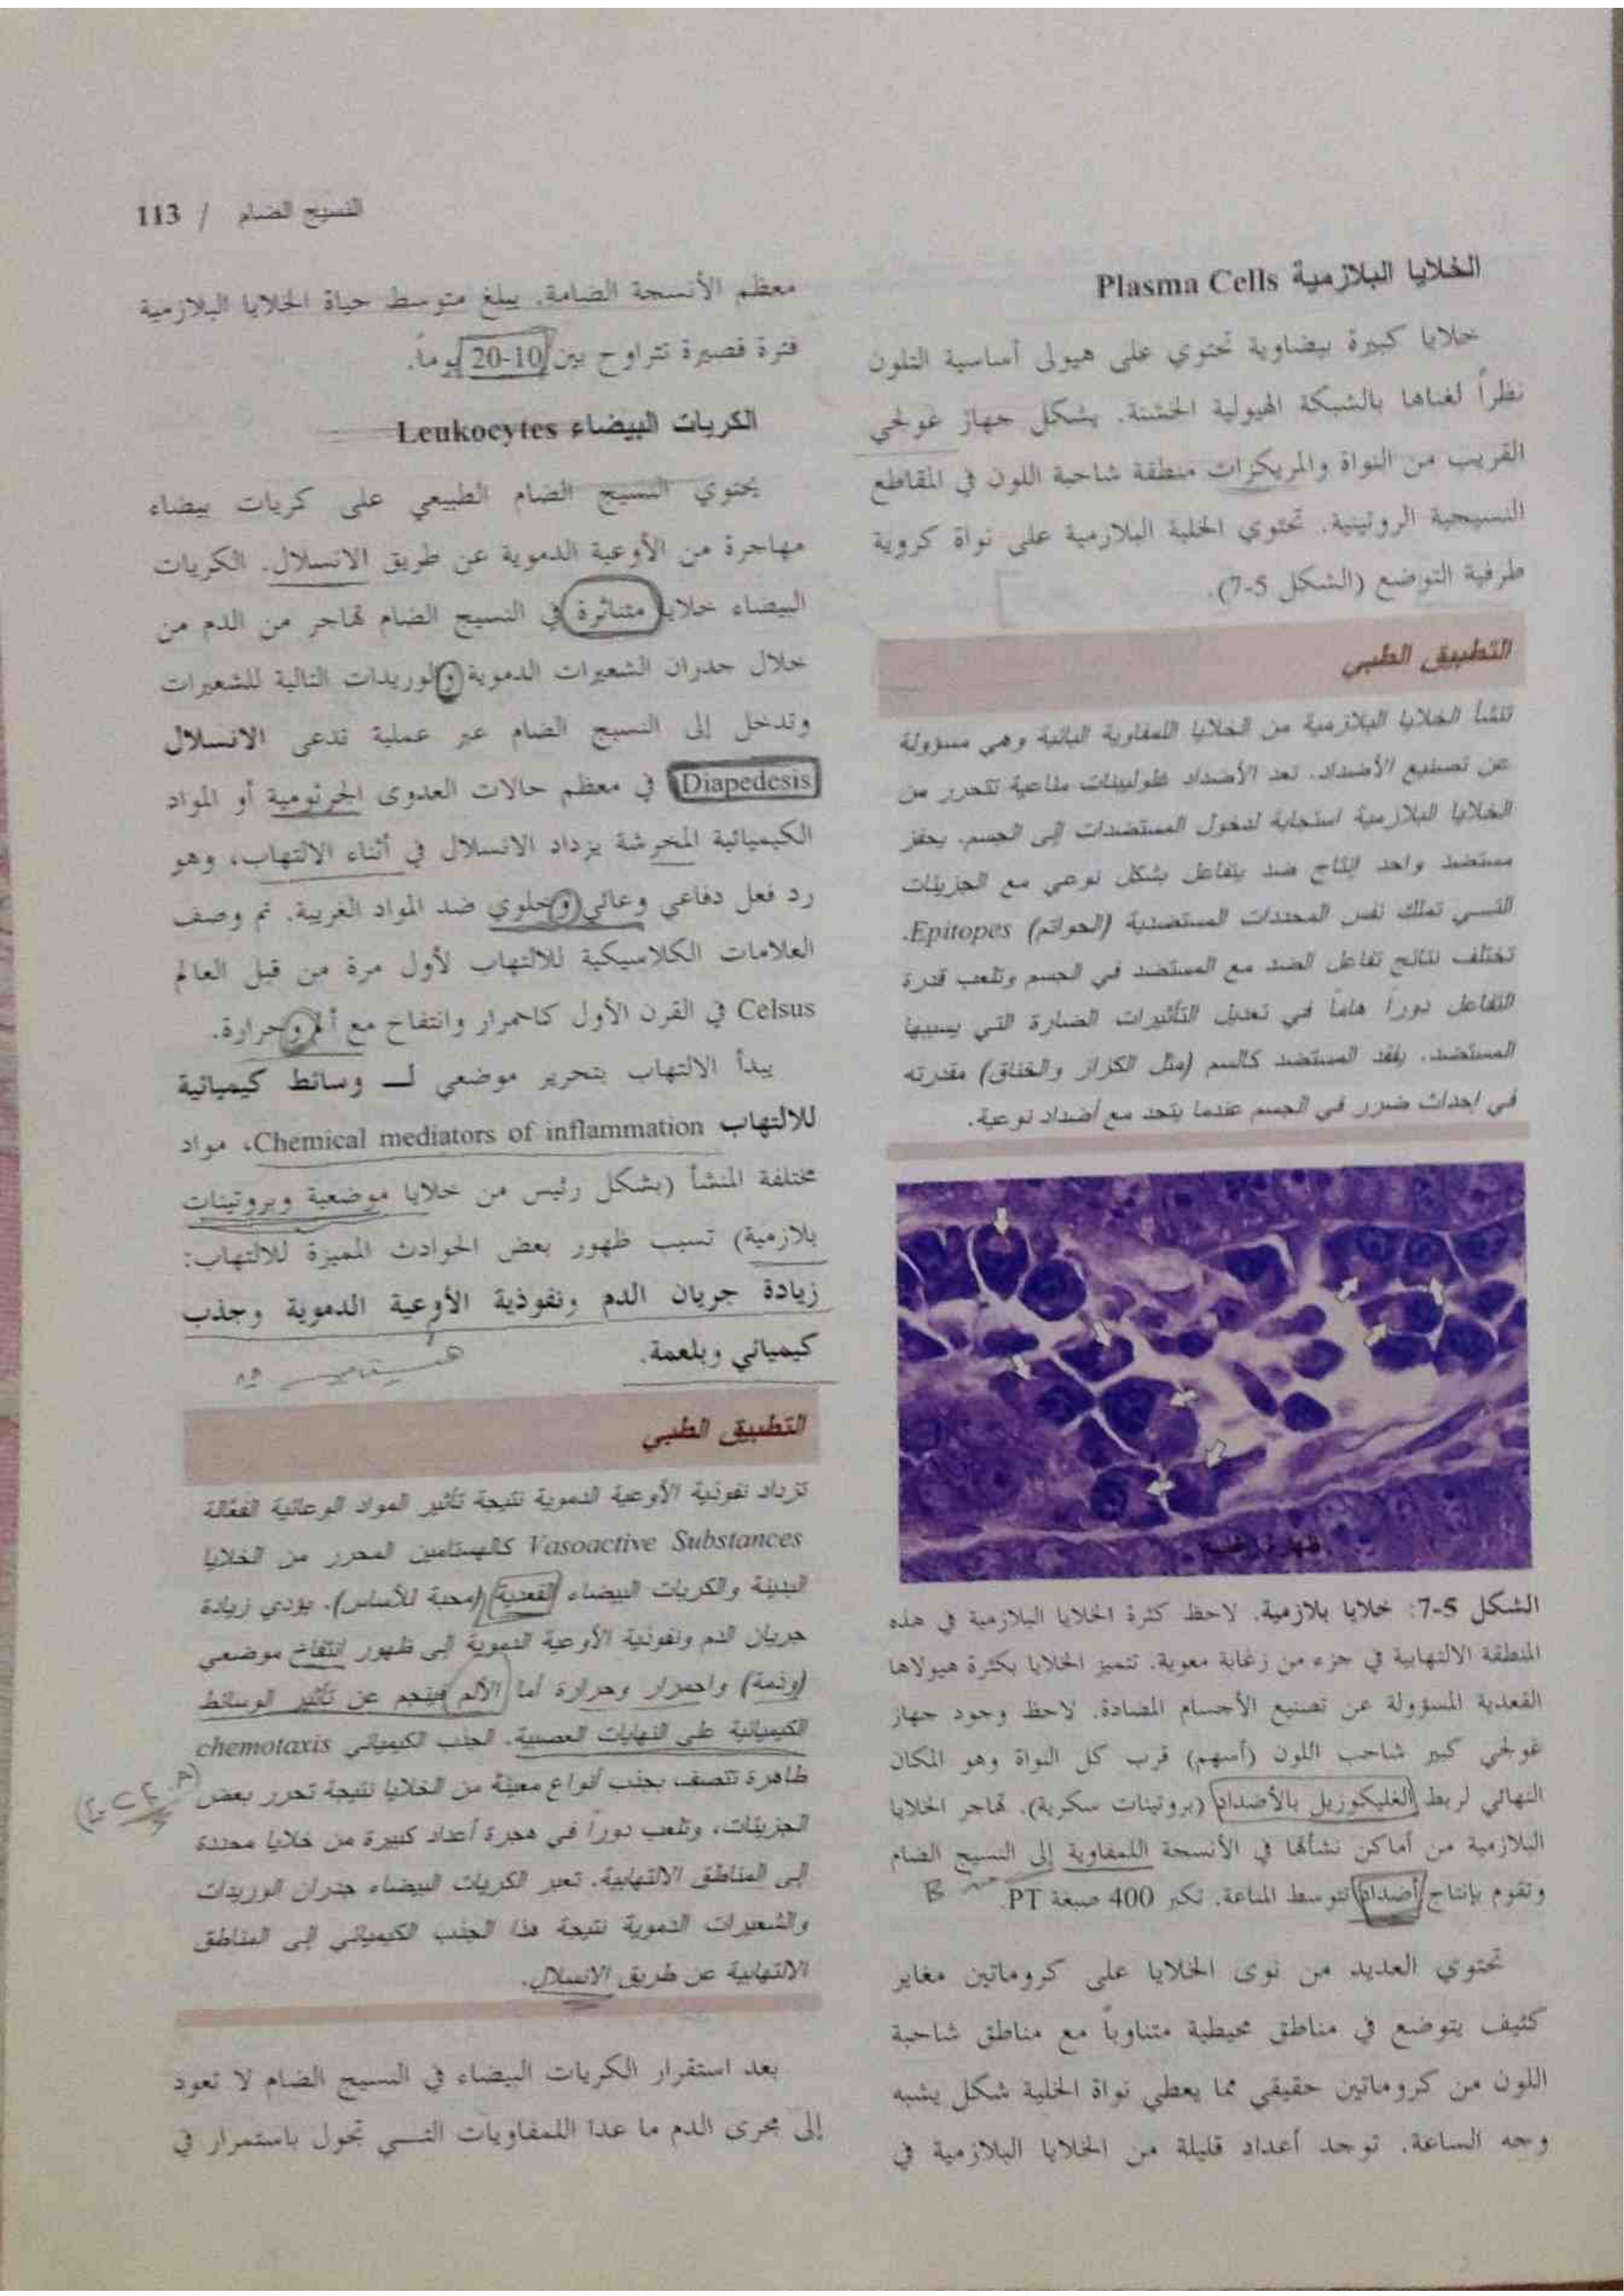 النسيج الضام / 113
الخلايا البلازمية Plasma Cells
خلايا كبيرة بيضاوية تحتوي على هيولى أساسية التلون
نظراً لغناها بالشبكة الهيولية الخشنة. يشكل جهاز غولجي
القريب من النواة والمريكزات منطقة شاحبة اللون في المقاطع
النسيجية الروتينية. تحتوي الخلية البلازمية على نواة كروية
طرفية التوضع (الشكل 5-7).
التطبيق الطبي
تنشأ الخلايا البلازمية من الخلايا اللمفاوية البائية وهي مسؤولة
عن تصنيع الأضداد. تعد الأضداد غلوبينات مناعية تتحرر من
الخلايا البلازمية استجابة لدخول المستضدات إلى الجسم. يحفز
مستضد واحد إنتاج ضد يتفاعل بشكل نوعي مع الجزيئات
التي تملك نفس المحددات المستضدية (الحواتم) Epitopes.
تختلف نتائج تفاعل الضد مع المستضد في الجسم وتلعب قدرة
التفاعل دوراً هاماً في تعديل التأثيرات الضارة التي يسببها
المستضد. يفقد المستضد كالسم (مثل الكزاز والخناق) مقدرته
في إحداث ضرر في الجسم عندما يتحد مع أضداد نوعية.
الشكل 5-7: خلايا بلازمية. لاحظ كثرة الخلايا البلازمية في هذه
المنطقة الالتهابية في جزء من زغابة معوية. تتميز الخلايا بكثرة هيولاها
القعدية المسؤولة عن تصنيع الأجسام المضادة. لاحظ وجود جهاز
غولجي كبير شاحب اللون (أسهم) قرب كل النواة وهو المكان
النهائي لربط الغليكوزيل بالأضداد (بروتينات سكرية). تهاجر الخلايا
البلازمية من أماكن نشأتها في الأنسجة اللمفاوية إلى النسيج الضام
وتقوم بإنتاج أضداد تتوسط المناعة. تكبر 400 صبغة PT.
B
تحتوي العديد من نوى الخلايا على كروماتين مغاير
كثيف يتوضع في مناطق محيطية متناوباً مع مناطق شاحبة
اللون من كروماتين حقيقي مما يعطي نواة الخلية شكل يشبه
وجه الساعة. توجد أعداد قليلة من الخلايا البلازمية في
معظم الأنسجة الضامة. يبلغ متوسط حياة الخلايا البلازمية
فترة قصيرة تتراوح بين 10-20 يوماً.
الكريات البيضاء Leukocytes
يحتوي النسيج الضام الطبيعي على كريات بيضاء
مهاجرة من الأوعية الدموية عن طريق الانسلال. الكريات
البيضاء خلايا متناثرة في النسيج الضام تهاجر من الدم من
خلال جدران الشعيرات الدموية والوريدات التالية للشعيرات
وتدخل إلى النسيج الضام عبر عملية تدعى الانسلال
Diapedesis في معظم حالات العدوى الجرثومية أو المواد
الكيميائية المخرشة يزداد الانسلال في أثناء الالتهاب، وهو
رد فعل دفاعي وعائي وخلوي ضد المواد الغريبة. تم وصف
العلامات الكلاسيكية للالتهاب لأول مرة من قبل العالم
Celsus في القرن الأول كاحمرار وانتفاخ مع ألم وحرارة.
يبدأ الالتهاب بتحرير موضعي لـ وسائط كيميائية
للالتهاب Chemical mediators of inflammation، مواد
مختلفة المنشأ (بشكل رئيس من خلايا موضعية وبروتينات
بلازمية) تسبب ظهور بعض الحوادث المميزة للالتهاب:
زيادة جريان الدم ونفوذية الأوعية الدموية وجذب
كيميائي وبلعمة.
هيستامين
التطبيق الطبي
تزداد نفوذية الأوعية الدموية نتيجة تأثير المواد الوعائية الفعّالة
Vasoactive Substances كالهستامين المحرر من الخلايا
البدينة والكريات البيضاء القعدية (محبة للأساس). يؤدي زيادة
جريان الدم ونفوذية الأوعية الدموية إلى ظهور انتفاخ موضعي
(وذمة) واحمرار وحرارة أما الألم فينجم عن تأثير الوسائط
الكيميائية على النهايات العصبية. الجذب الكيميائي chemotaxis
ظاهرة تتصف بجذب أنواع معينة من الخلايا نتيجة تحرر بعض
الجزيئات، وتلعب دوراً في هجرة أعداد كبيرة من خلايا محددة
إلى المناطق الالتهابية. تعبر الكريات البيضاء جدران الوريدات
والشعيرات الدموية نتيجة هذا الجذب الكيميائي إلى المناطق
الالتهابية عن طريق الانسلال.
بعد استقرار الكريات البيضاء في النسيج الضام لا تعود
إلى مجرى الدم ما عدا اللمفاويات التي تجول باستمرار في